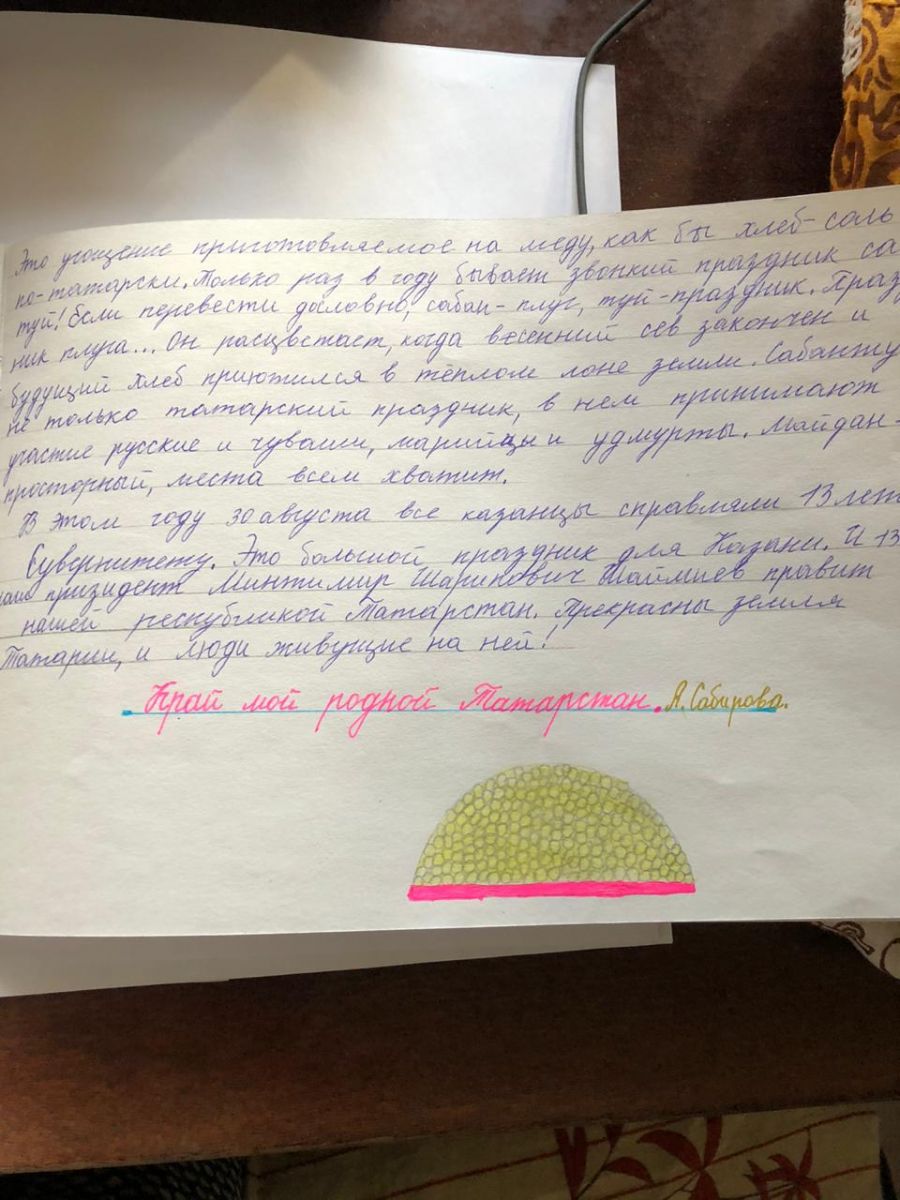 Это угощение приготовляемое на меду, как бы хлеб-соль
по-татарски. Только раз в году бывает звонкий праздник са
туй! Если перевести дословно, сабан-плуг, туй-праздник. Праз
ник плуга... Он расцветает, когда весенний сев закончен и
будущий хлеб приютился в тёплом лоне земли. Сабанту
не только татарский праздник, в нем принимают
участие русские и чуваши, марийцы и удмурты. Майдан-
просторный, места всем хватит.
В этом году 30 августа все казанцы справляли 13 лет
Сувернитету. Это большой праздник для Казани. И 13
призидент Минтимир Шарипович Шаймиев правит
нашей республикой Татарстан. Прекрасны земля
Татарии, и люди живущие на ней!
Край мой родной Татарстан. А. Сабирова.